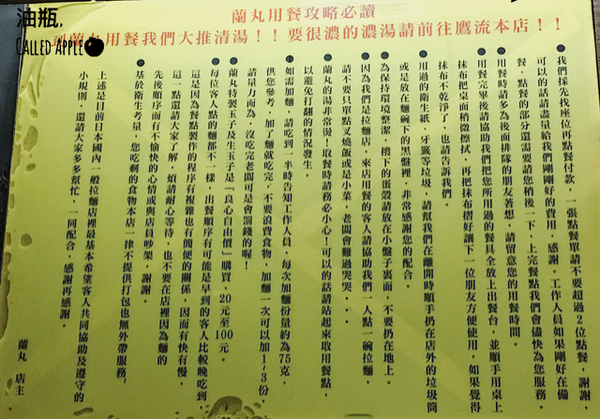 油瓶,
CALLED APPLE
蘭丸用餐攻略必讀
到蘭丸用餐我們大推清湯!!要很濃的濃湯請前往鷹流本店!!
●我們採先找座位再點餐付款,一張點餐單請不要超過2位點餐,謝謝,
可以的話請盡量給我們剛剛好的費用,感謝。工作人員如果剛好在備
餐,點餐的部分還需要請您稍後一下,上完餐點我們會儘快為您服務
●用餐時請多為後面排隊的朋友著想,請留意您的用餐時間。
●用餐完畢後請協助我們把您所用過的餐具全放上出餐台,並順手用桌上
抹布把桌面稍微擦拭,再把抹布摺好讓下一位朋友方便使用,如果覺得
抹布不乾淨了,也請告訴我們。
●用過的衛生紙、牙籤等垃圾,請幫我們在離開時順手扔在店外的垃圾筒
或是放在麵碗下的黑盤裡,非常感謝您的配合。
●為保持環境整潔,撥下的蛋殼請放在小盤子裏面,不要扔在地上。
●因為我們是拉麵店,來店用餐的客人請協助我們一人點一碗拉麵,
請不要只單點叉燒飯或是小菜,老闆會難過哭哭...
●蘭丸的湯非常燙!取餐時請務必小心!可以的話請站起來取用餐點,
以避免打翻的情況發生
●如需加麵,請吃到一半時告知工作人員,每次加麵份量約為75克,
供您參考,加了麵就吃完,不要浪費食物,加麵一次可以加1~3份,
請量力而為,沒吃完老闆可是會罰錢的喔!
●蘭丸特製玉子及生玉子是「良心自由價」購買,20元至100元。
●每位客人點的麵都不一樣,出餐順序有可能是早到的客人比較晚吃到
這是因為餐點製作的程序有複雜也有簡便的關係,因而有快有慢,
這一點還請大家了解,煩請耐心等待,也不要在店裡因為麵的
先後順序而有不愉快的心情或與店員吵架,謝謝。
●基於衛生考量,您吃剩的食物本店一律不提供打包也無外帶服務,
上述是目前日本國內一般拉麵店裡最基本希望客人共同協助及遵守的
小規則,還請大家多多幫忙,一同配合,感謝再感謝。
蘭丸 店主